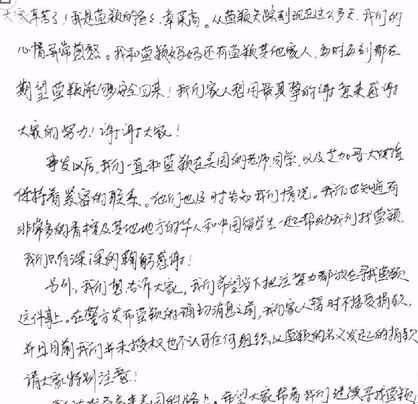 大家辛苦了！我是蓝颖的爸爸，章荣高。从蓝颖失踪到现在这么多天，我们的
心情异常焦急。我和蓝颖妈妈还有蓝颖其他家人，每时每刻都在
期望蓝颖能够安全回来！我们家人想用最真挚的谢意来感谢
大家的努力！谢谢大家！
事发以后，我们一直和蓝颖在美国的老师同学，以及芝加哥大使馆
保持着紧密的联系。他们也及时告知我们情况。我们也知道有
非常多的香槟及其他地方的华人和中国留学生一起帮助我们找蓝颖，
我们只有深深的鞠躬感谢！
另外，我们想告诉大家，我们希望当下把注意力都放在寻找蓝颖
这件事上。在警方发布蓝颖的确切消息之前，我们家人暂时不接受捐款，
并且目前我们并未授权也不认可任何组织以蓝颖的名义发起的捐款，
请大家特别注意！
来美国的路上，希望大家帮着我们继续寻找蓝颖